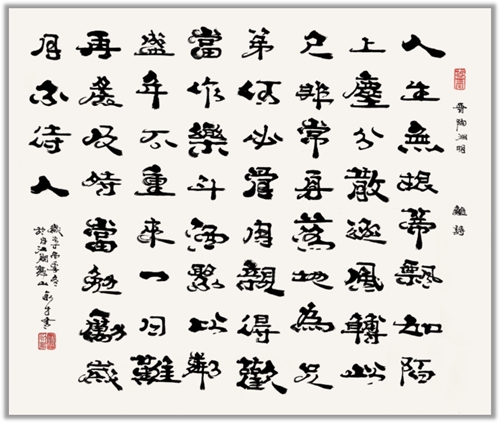 晉陶淵明 雜詩
人生無根蒂飄如陌
上塵分散逐風轉此
已非常身落地為兄
弟何必骨肉親得歡
當作樂斗酒聚比鄰
盛年不重來一日難
再晨及時當勉勵歲
月不待人